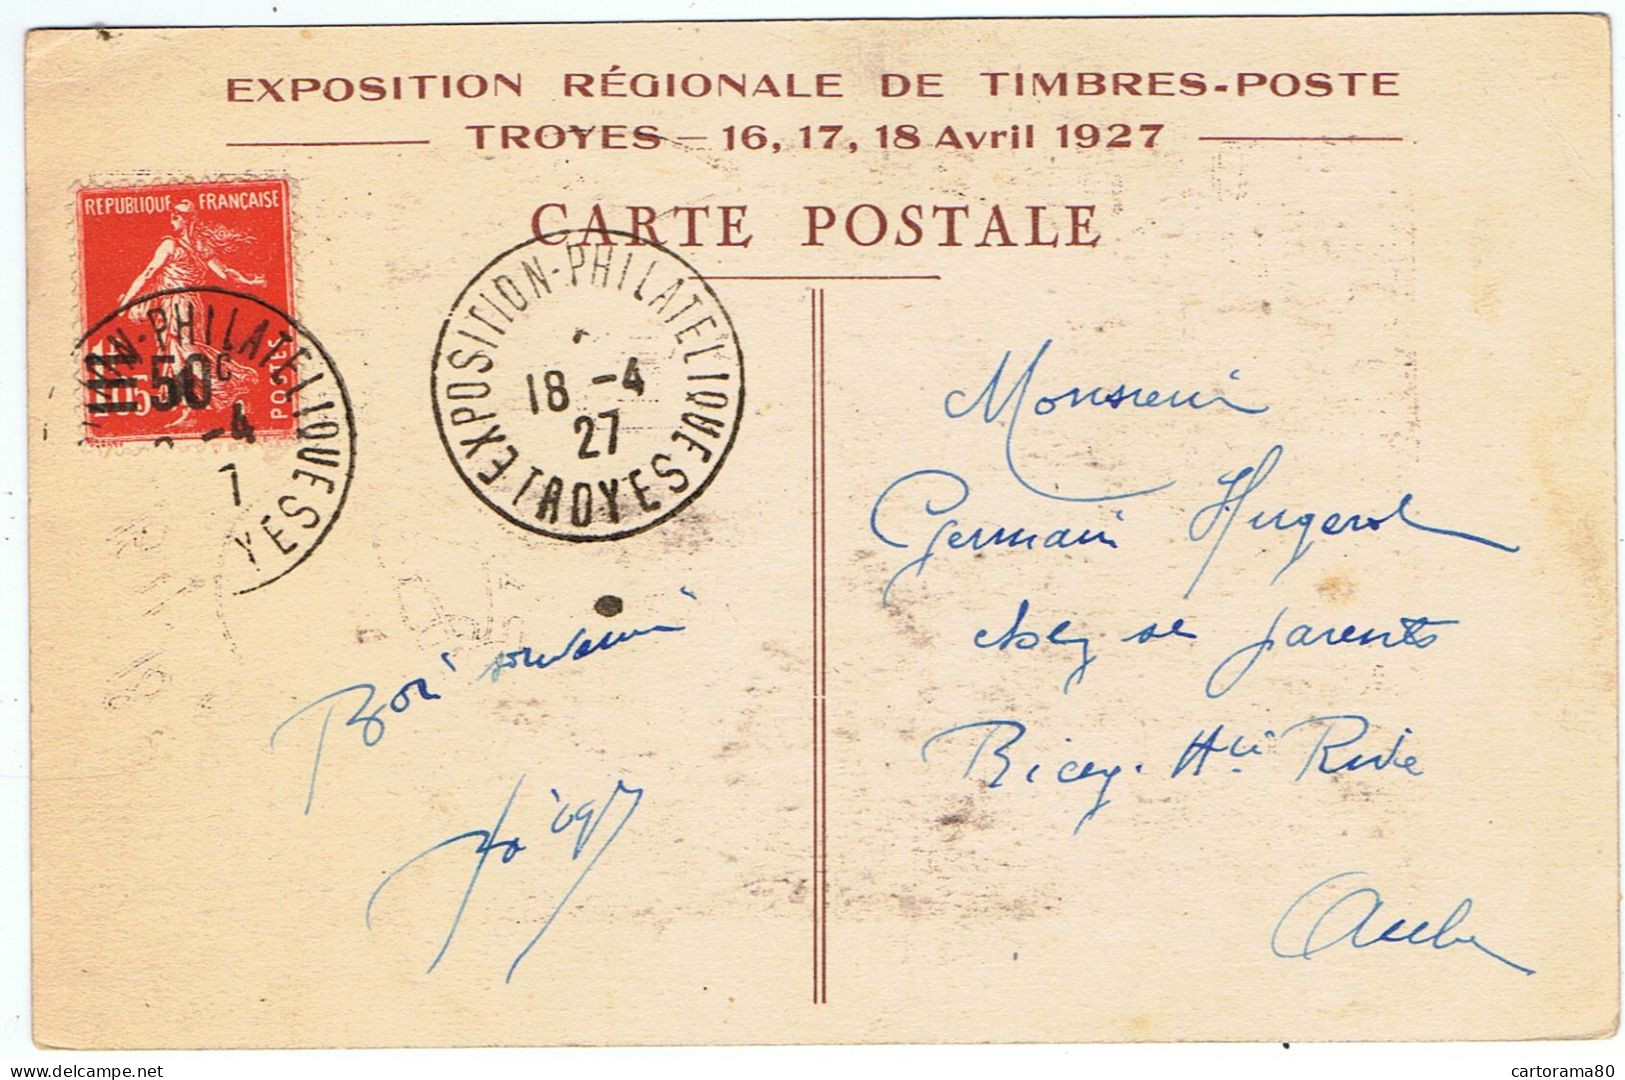 EXPOSITION RÉGIONALE DE TIMBRES-POSTE
TROYES — 16, 17, 18 Avril 1927
CARTE POSTALE
REPUBLIQUE FRANÇAISE
POSTES
50c
ION-PHILATELIQUE
-4
7
YES
EXPOSITION-PHILATELIQUE
18 -4
27
TROYES
Monsieur
Germain Hugerot
chez se parents
Ricey. Hte Rive
Aube
Bon souvenir
cartorama80